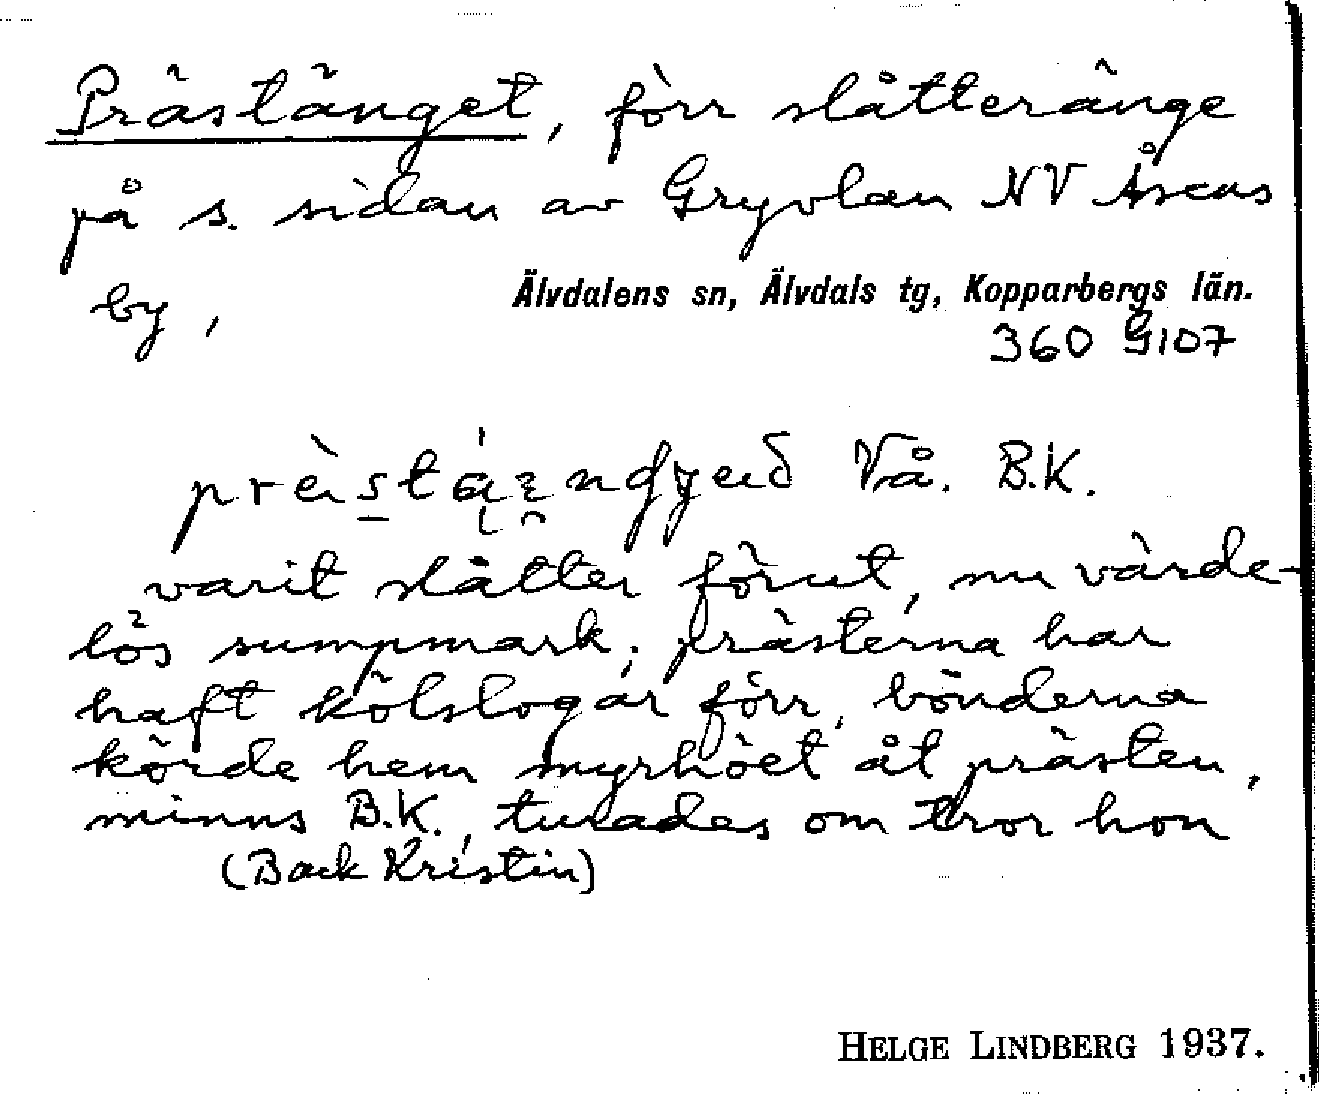 Prästänget, förr slåtteränge
på s. sidan av Gryvlan NV Åsens
by,
Älvdalens sn, Älvdals tg, Kopparbergs län.
360 G107
Vå. B.K.
varit slåtter förut, nu värde-
lös sumpmark; prästerna har
haft kölslogår förr, bönderna
körde hem myrhöet åt prästen,
minns B.K., turades om tror hon
(Back Kristin)
HELGE LINDBERG 1937.